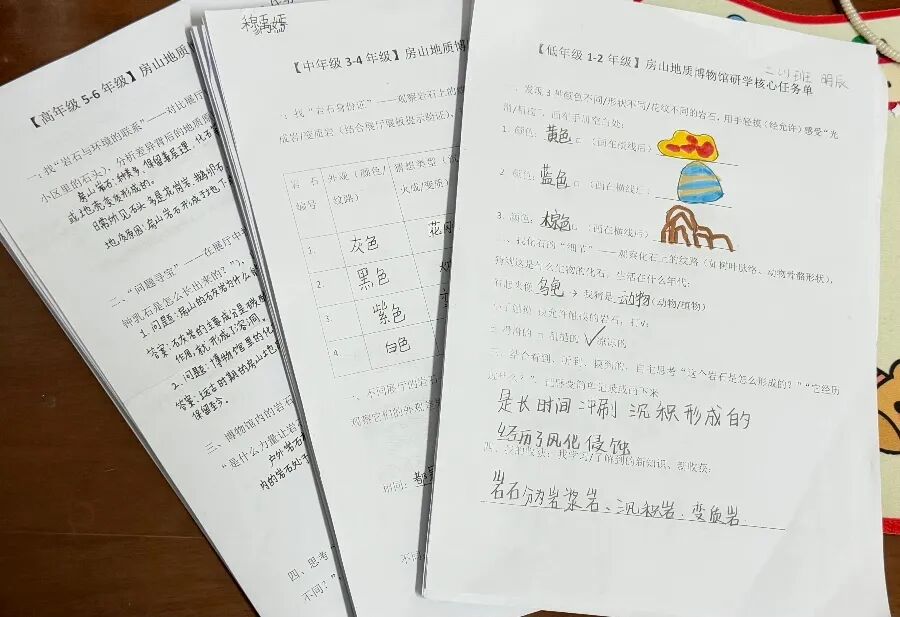 【高年级 5-6 年级】房山地质
一、找“岩石与环境的联系”——对比展厅
小区里的石头），分析差异背后的地质
房山岩石：种类多，保留着层理、化石
或地壳变质形成的。
日常所见石头多是花岗岩、鹅卵石
地质原因：房山岩石形成于地下
二、“问题寻宝”——在展厅中
钟乳石是怎么长出来的？”），
1.问题：房山的石灰岩为什么
答案：石灰岩的主要成分是碳酸
作用，就形成了溶洞。
2.问题：博物馆里的化
答案：远古时期的房山地
保留至今。
三、博物馆内的岩石
“是什么力量让岩石
户外岩石
内的岩石处于
四、思考“
不同？”，
【中年级 3-4 年级】房山地质博
一、找“岩石身份证”——观察岩石上的
成岩/变质岩（结合展厅展板提示验证）。
岩石编号
外观（颜色/纹路）
猜想类型（
火成/变质）
1.
灰色
2
黑色
3
紫色
4.
白色
不同展厅的岩石
观察它们的外观
不同
【低年级 1-2 年级】房山地质博物馆研学核心任务单
明辰
发现 3 块颜色不同/形状不同/花纹不同的岩石，用手轻摸（经允许）感受“光
滑/粗糙”，画在手册空白处：
1. 颜色：黄色 （画在横线后）
2 颜色：蓝色 （画在横线后）
3. 颜色：棕色 （画在横线后）
二、找化石的“细节”——观察化石上的纹路（如树叶脉络、动物骨骼形状），
猜猜这是什么生物的化石，生活在什么年代：
看起来像 乌龟 → 我猜是 动物（动物/植物）
三、结合看到、听到、摸到的，自主思考“这个岩石是怎么形成的？”“它经历
是长时间冲刷沉积形成的
经历了风化侵蚀
四、我的发现：我学习/了解到的新知识、新收获：
岩石分为岩浆岩、沉积岩、变质岩